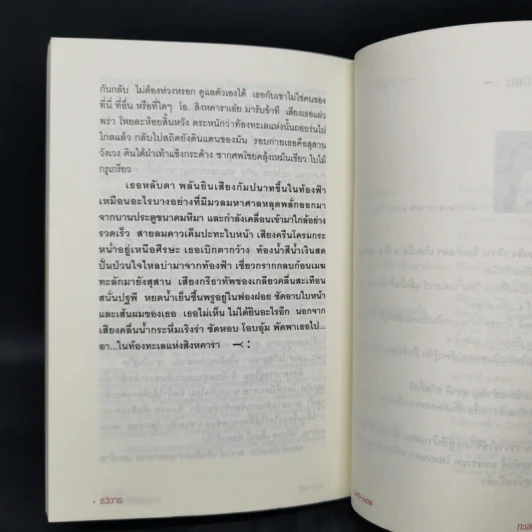 กันกลับ ไม่ต้องห่วงหรอก ดูแลตัวเองได้ เธอกับเขาไม่ใช่คนของ
ที่นี่ ที่อื่น หรือที่ใดๆ โอ...สิงหคาราเอ๋ย มารับข้าที เสียงเธอแผ่ว
พร่า โหยละห้อยสิ้นหวัง ตระหนักว่าท้องทะเลแห่งนั้นถอยร่นไป
ไกลแล้ว กลับไปสถิตยังดินแดนของมัน รอบกายเธอคือสุสาน
วังเวง ดินใต้ฝ่าเท้าแข็งกระด้าง ซากศพโชยคลุ้งเหม็นเขียว ใบไม้
กรูเกรียว
เธอหลับตา พลันยินเสียงกัมปนาทขึ้นในท้องฟ้า
เหมือนอะไรบางอย่างที่มีมวลมหาศาลหลุดพลั่กออกมา
จากบานประตูขนาดมหึมา และกำลังเคลื่อนเข้ามาใกล้อย่าง
รวดเร็ว สายลมคาวเค็มปะทะใบหน้า เสียงครืนโครมกระ
หน่ำอยู่เหนือศีรษะ เธอเบิกตากว้าง ท้องน้ำสีน้ำเงินสด
ปั่นป่วนไจไหลบ่ามาจากท้องฟ้า เชี่ยวกรากกลบก้อนเมฆ
ทะลักมายังสุสาน เสียงกรีธาทัพของเกลียวคลื่นสะเทือน
สนั่นปฐพี หยดน้ำเย็นชื้นพรูอยู่ในฟองฝอย ซัดอาบใบหน้า
และเส้นผมของเธอ เธอไม่เห็น ไม่ได้ยินอะไรอีก นอกจาก
เสียงคลื่นน้ำกระหึ่มเริงร่า ซัดหอบ โอบอุ้ม พัดพาเธอไป...
อา...ในท้องทะเลแห่งสิงหคารา
• รวิวาร
ทะเล